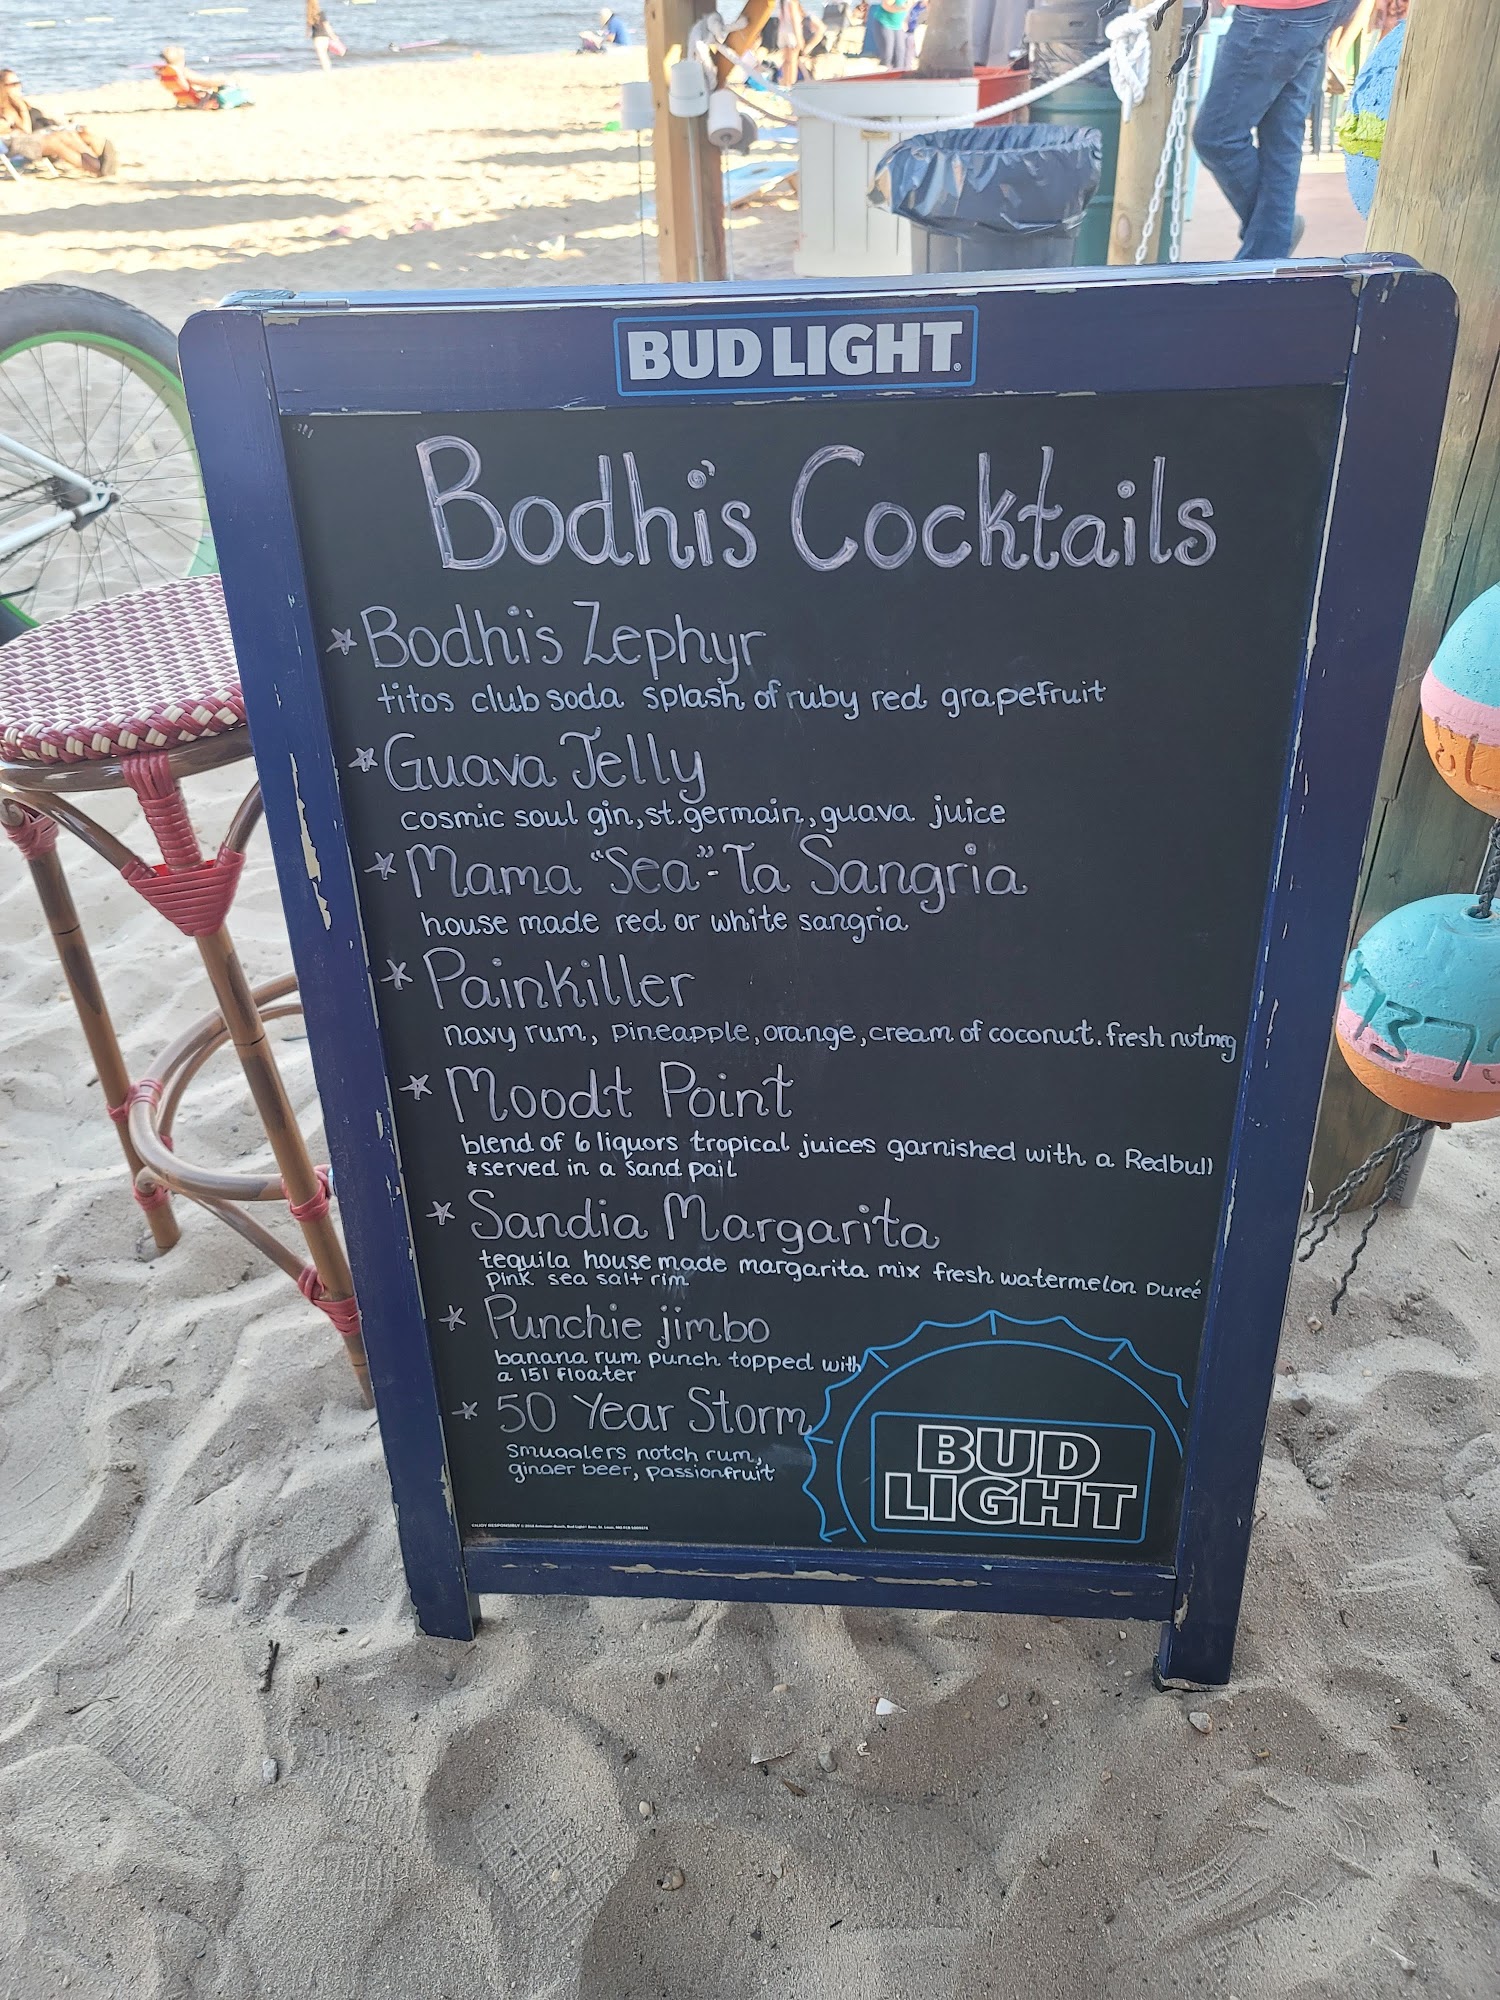 BUD LIGHT
Bodhi's Cocktails
Bodhi's Zephyr
titos club soda splash of ruby red grapefruit
Guava Jelly
cosmic soul gin, st. germain, guava juice
Mama "Sea"-Ta Sangria
house made red or white sangria
Painkiller
navy rum, pineapple, orange, cream of coconut. fresh nutmeg
Moodt Point
blend of 6 liquors tropical juices garnished with a Redbull
*served in a sand pail
Sandia Margarita
tequila house made margarita mix fresh watermelon pureé
pink sea salt rim
Punchie jimbo
banana rum punch topped with
a 151 floater
50 Year Storm
smugglers notch rum,
ginger beer, passionfruit
BUD
LIGHT